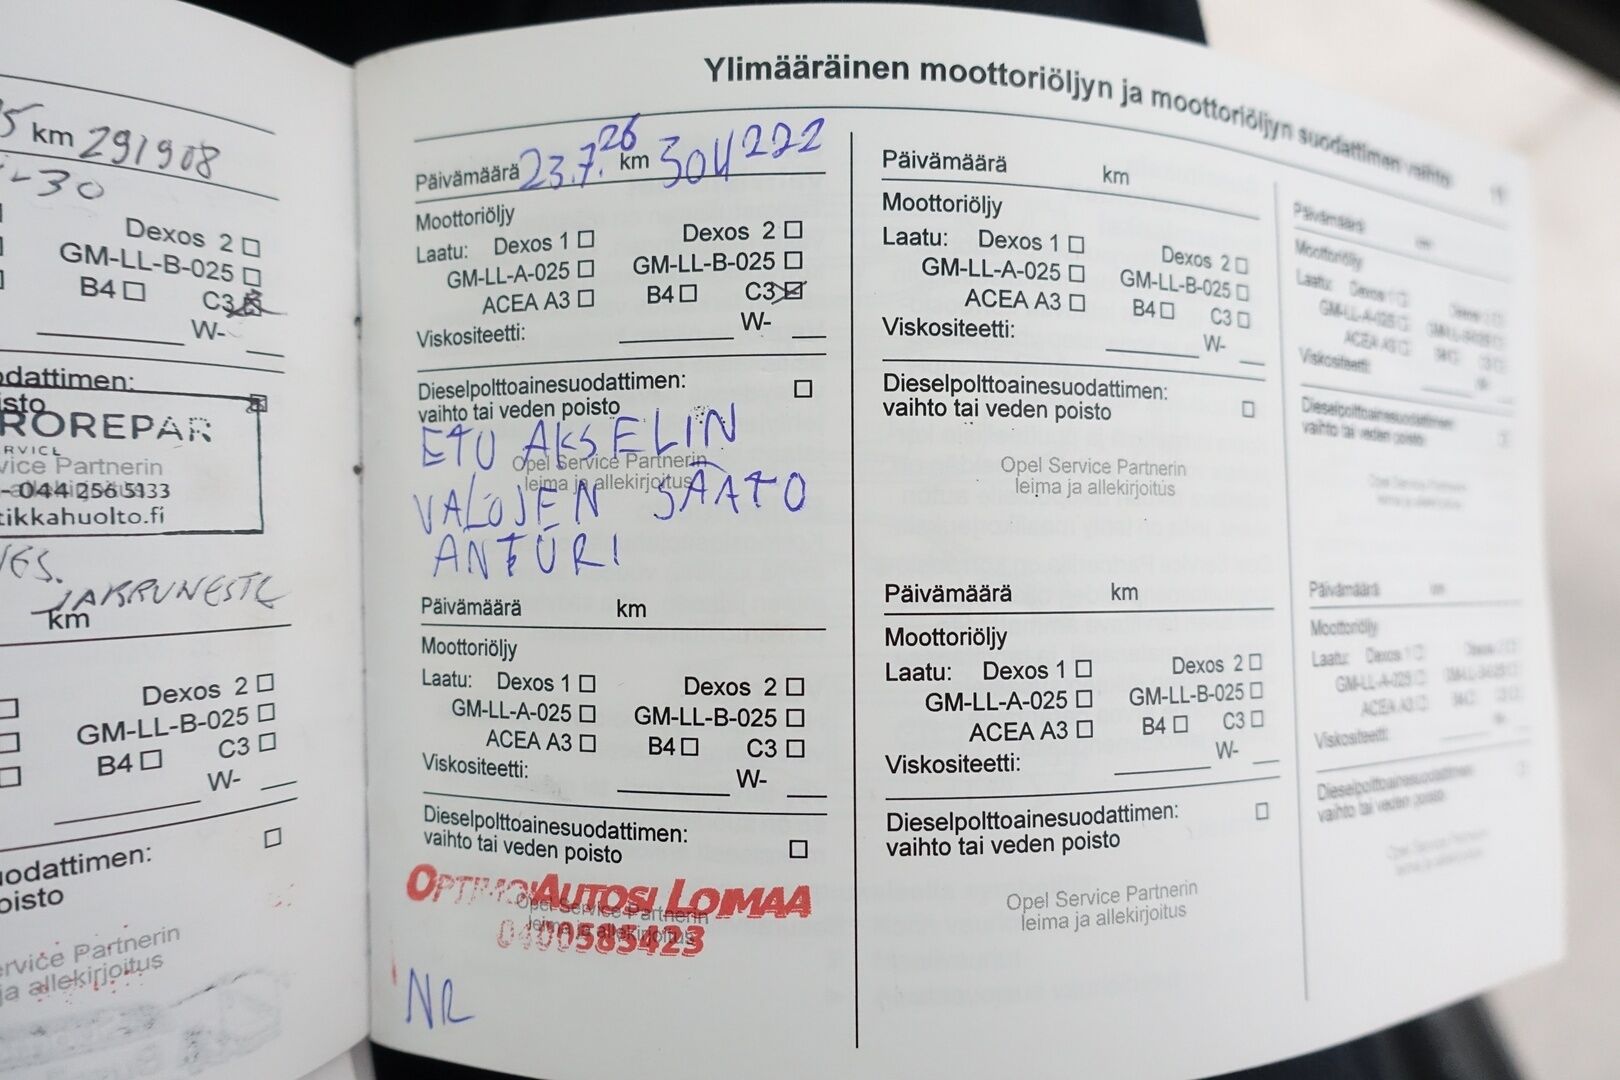 Ylimääräinen moottoriöljyn ja moottoriöljyn suodattimen vaihto
km 291908
-30
Dexos 2
GM-LL-B-025
B4 C3
W-
isto
ROREPAR
RVICE
vice Partnerin
- 044 256 5133
tikkahuolto.fi
JARRUNESTE
km
Dexos 2
GM-LL-B-025
B4 C3
W-
uodattimen:
oisto
rvice Partnerin
ja allekirjoitus
Päivämäärä 23.7.26 km 304222
Moottoriöljy
Laatu: Dexos 1 Dexos 2
GM-LL-A-025 GM-LL-B-025
ACEA A3 B4 C3
Viskositeetti: W-
Dieselpolttoainesuodattimen:
vaihto tai veden poisto
ETU AKSELIN
Opel Service Partnerin
leima ja allekirjoitus
VALOJEN SÄÄTO
ANTURI
Päivämäärä km
Moottoriöljy
Laatu: Dexos 1 Dexos 2
GM-LL-A-025 GM-LL-B-025
ACEA A3 B4 C3
Viskositeetti: W-
Dieselpolttoainesuodattimen:
vaihto tai veden poisto
OPTIMOIAUTOSI LOIMAA
Opel Service Partnerin
leima ja allekirjoitus
0400585423
NR
Päivämäärä km
Moottoriöljy
Laatu: Dexos 1 Dexos 2
GM-LL-A-025 GM-LL-B-025
ACEA A3 B4 C3
Viskositeetti: W-
Dieselpolttoainesuodattimen:
vaihto tai veden poisto
Opel Service Partnerin
leima ja allekirjoitus
Päivämäärä km
Moottoriöljy
Laatu: Dexos 1 Dexos 2
GM-LL-A-025 GM-LL-B-025
ACEA A3 B4 C3
Viskositeetti: W-
Dieselpolttoainesuodattimen:
vaihto tai veden poisto
Opel Service Partnerin
leima ja allekirjoitus
Päivämäärä km
Moottoriöljy
Laatu: Dexos 1 Dexos 2
GM-LL-A-025 GM-LL-B-025
ACEA A3 B4 C3
Viskositeetti: W-
Dieselpolttoainesuodattimen:
vaihto tai veden poisto
Opel Service Partnerin
leima ja allekirjoitus
Päivämäärä km
Moottoriöljy
Laatu: Dexos 1 Dexos 2
GM-LL-A-025 GM-LL-B-025
ACEA A3 B4 C3
Viskositeetti: W-
Dieselpolttoainesuodattimen:
vaihto tai veden poisto
Opel Service Partnerin
leima ja allekirjoitus